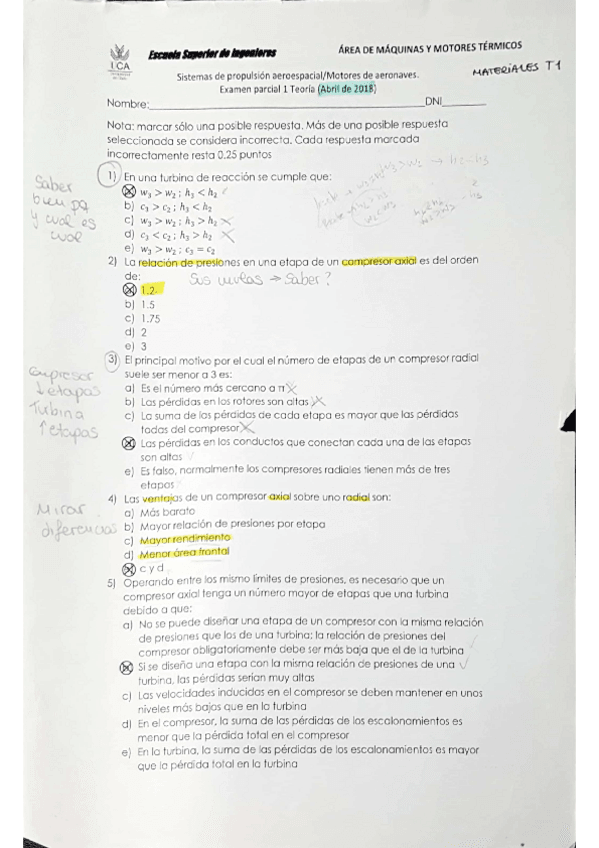 Escuela Superior de Ingenieros
ÁREA DE MÁQUINAS Y MOTORES TÉRMICOS
UCA
MATERIALES T1
Sistemas de propulsión aeroespacial/Motores de aeronaves.
Examen parcial 1 Teoría (Abril de 2018)
Nombre: DNI
Nota: marcar sólo una posible respuesta. Más de una posible respuesta
seleccionada se considera incorrecta. Cada respuesta marcada
incorrectamente resta 0.25 puntos
Saber
bien pq
y cual es
cual
1) En una turbina de reacción se cumple que:
a) w₃ > w₂ ; h₃ < h₂
b) c₃ > c₂ ; h₃ < h₂
c) w₃ > w₂ ; h₃ > h₂
d) c₃ < c₂ ; h₃ > h₂
e) w₃ > w₂ ; c₃ = c₂
2) La relación de presiones en una etapa de un compresor axial es del orden
de: → Saber?
a) 1.2
b) 1.5
c) 1.75
d) 2
e) 3
Compresor
↓etapas
Turbina
↑etapas
3) El principal motivo por el cual el número de etapas de un compresor radial
suele ser menor a 3 es:
a) Es el número más cercano a π
b) Las pérdidas en los rotores son altas
c) La suma de las pérdidas de cada etapa es mayor que las pérdidas
todas del compresor
d) Las pérdidas en los conductos que conectan cada una de las etapas
son altas
e) Es falso, normalmente los compresores radiales tienen más de tres
etapas
Mirar
diferencias
4) Las ventajas de un compresor axial sobre uno radial son:
a) Más barato
b) Mayor relación de presiones por etapa
c) Mayor rendimiento
d) Menor área frontal
e) c y d
5) Operando entre los mismo límites de presiones, es necesario que un
compresor axial tenga un número mayor de etapas que una turbina
debido a que:
a) No se puede diseñar una etapa de un compresor con la misma relación
de presiones que los de una turbina; la relación de presiones del
compresor obligatoriamente debe ser más baja que el de la turbina
b) Si se diseña una etapa con la misma relación de presiones de una
turbina, las pérdidas serían muy altas
c) Las velocidades inducidas en el compresor se deben mantener en unos
niveles más bajos que en la turbina
d) En el compresor, la suma de las pérdidas de los escalonamientos es
menor que la pérdida total en el compresor
e) En la turbina, la suma de las pérdidas de los escalonamientos es mayor
que la pérdida total en la turbina